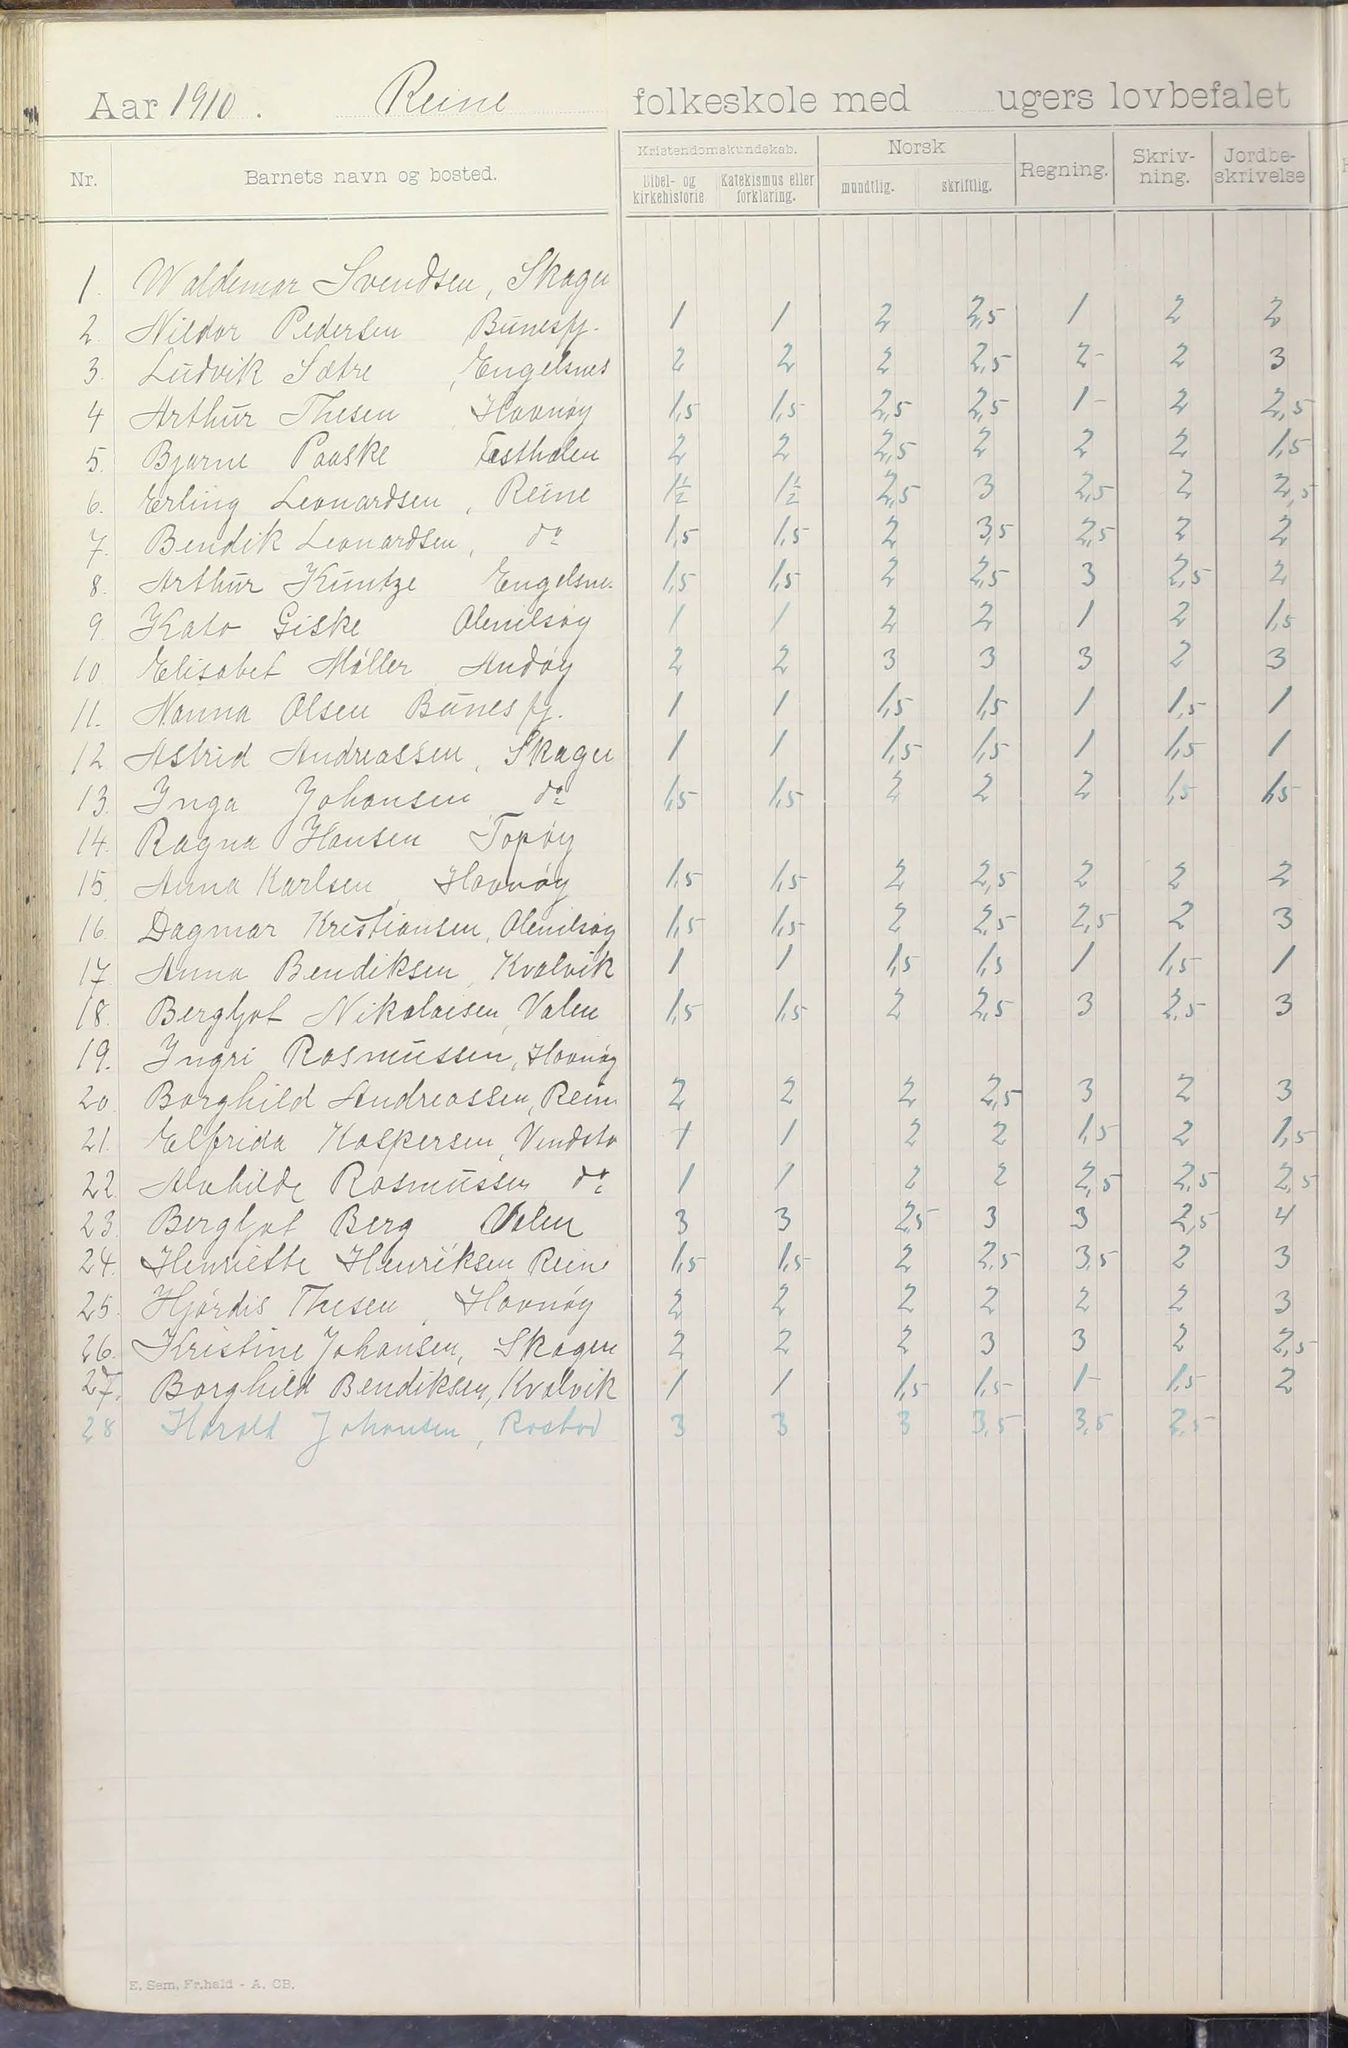 Aar 1910. Reine folkeskole med ugers lovbefalet
Nr. Barnets navn og bosted. Kristendomskundskab. Bibel- og kirkehistorie Katekismus eller forklaring. Norsk mundtlig. skriftlig. Regning. Skriv-ning. Jordbe-skrivelse
1. Waldemar Svendsen, Skagen
2. Hildor Pedersen Bunesfj. 1 1 2 2,5 1 2 2
3. Ludvik Sætre, Engelsnes 2 2 2 2,5 2- 2 3
4 Arthur Thesen Havnøy 1,5 1,5 2,5 2,5 1- 2 2,5
5. Bjarne Paaske Festhælen 2 2 2,5 2 2 2 1,5
6. Erling Leonardsen, Reine 1½ 1½ 2,5 3 2,5 2 2,5
7. Bendik Leonardsen, do 1,5 1,5 2 3,5 2,5 2 2
8. Arthur Kuntze Engelsne. 1,5 1,5 2 2,5 3 2,5 2
9. Kato Giske Olenilsøy 1 1 2 2 1 2 1,5
10 Elisabet Møller Andøy 2 2 3 3 3 2 3
11. Nanna Olsen Bunesfj. 1 1 1,5 1,5 1 1,5 1
12 Astrid Andreassen, Skagen 1 1 1,5 1,5 1 1,5 1
13. Inga Johansen do 1,5 1,5 2 2 2 1,5 1,5
14. Ragna Hansen Topøy
15. Anna Karlsen, Havnøy 1,5 1,5 2 2,5 2 2 2
16. Dagmar Kristiansen, Olenilsøy 1,5 1,5 2 2,5 2,5 2 3
17 Anna Bendiksen, Kvalvik 1 1 1,5 1,5 1 1,5 1
18. Bergljot Nikolaisen, Valen 1,5 1,5 2 2,5 3 2,5 3
19. Ingri Rasmussen, Havnøy
20. Borghild Andreassen, Rein 2 2 2 2,5 3 2 3
21. Elfrida Kaspersen, Vindsta 1 1 2 2 1,5 2 1,5
22. Alvhilde Rasmussen do 1 1 2 2 2,5 2,5 2,5
23. Bergljot Berg Valen 3 3 2,5 3 3 2,5 4
24. Henriette Henriksen Rein 1,5 1,5 2 2,5 3,5 2 3
25. Hjørdis Thesen, Havnøy 2 2 2 2 2 2 3
26. Kristine Johansen, Skagen 2 2 2 3 3 2 2,5
27. Borghild Bendiksen, Kvalvik 1 1 1,5 1,5 1- 1,5 2
28 Harald Johansen, Rostad 3 3 3 3,5 3,5 2,5
E. Sem, Fr.hald - A. CB.